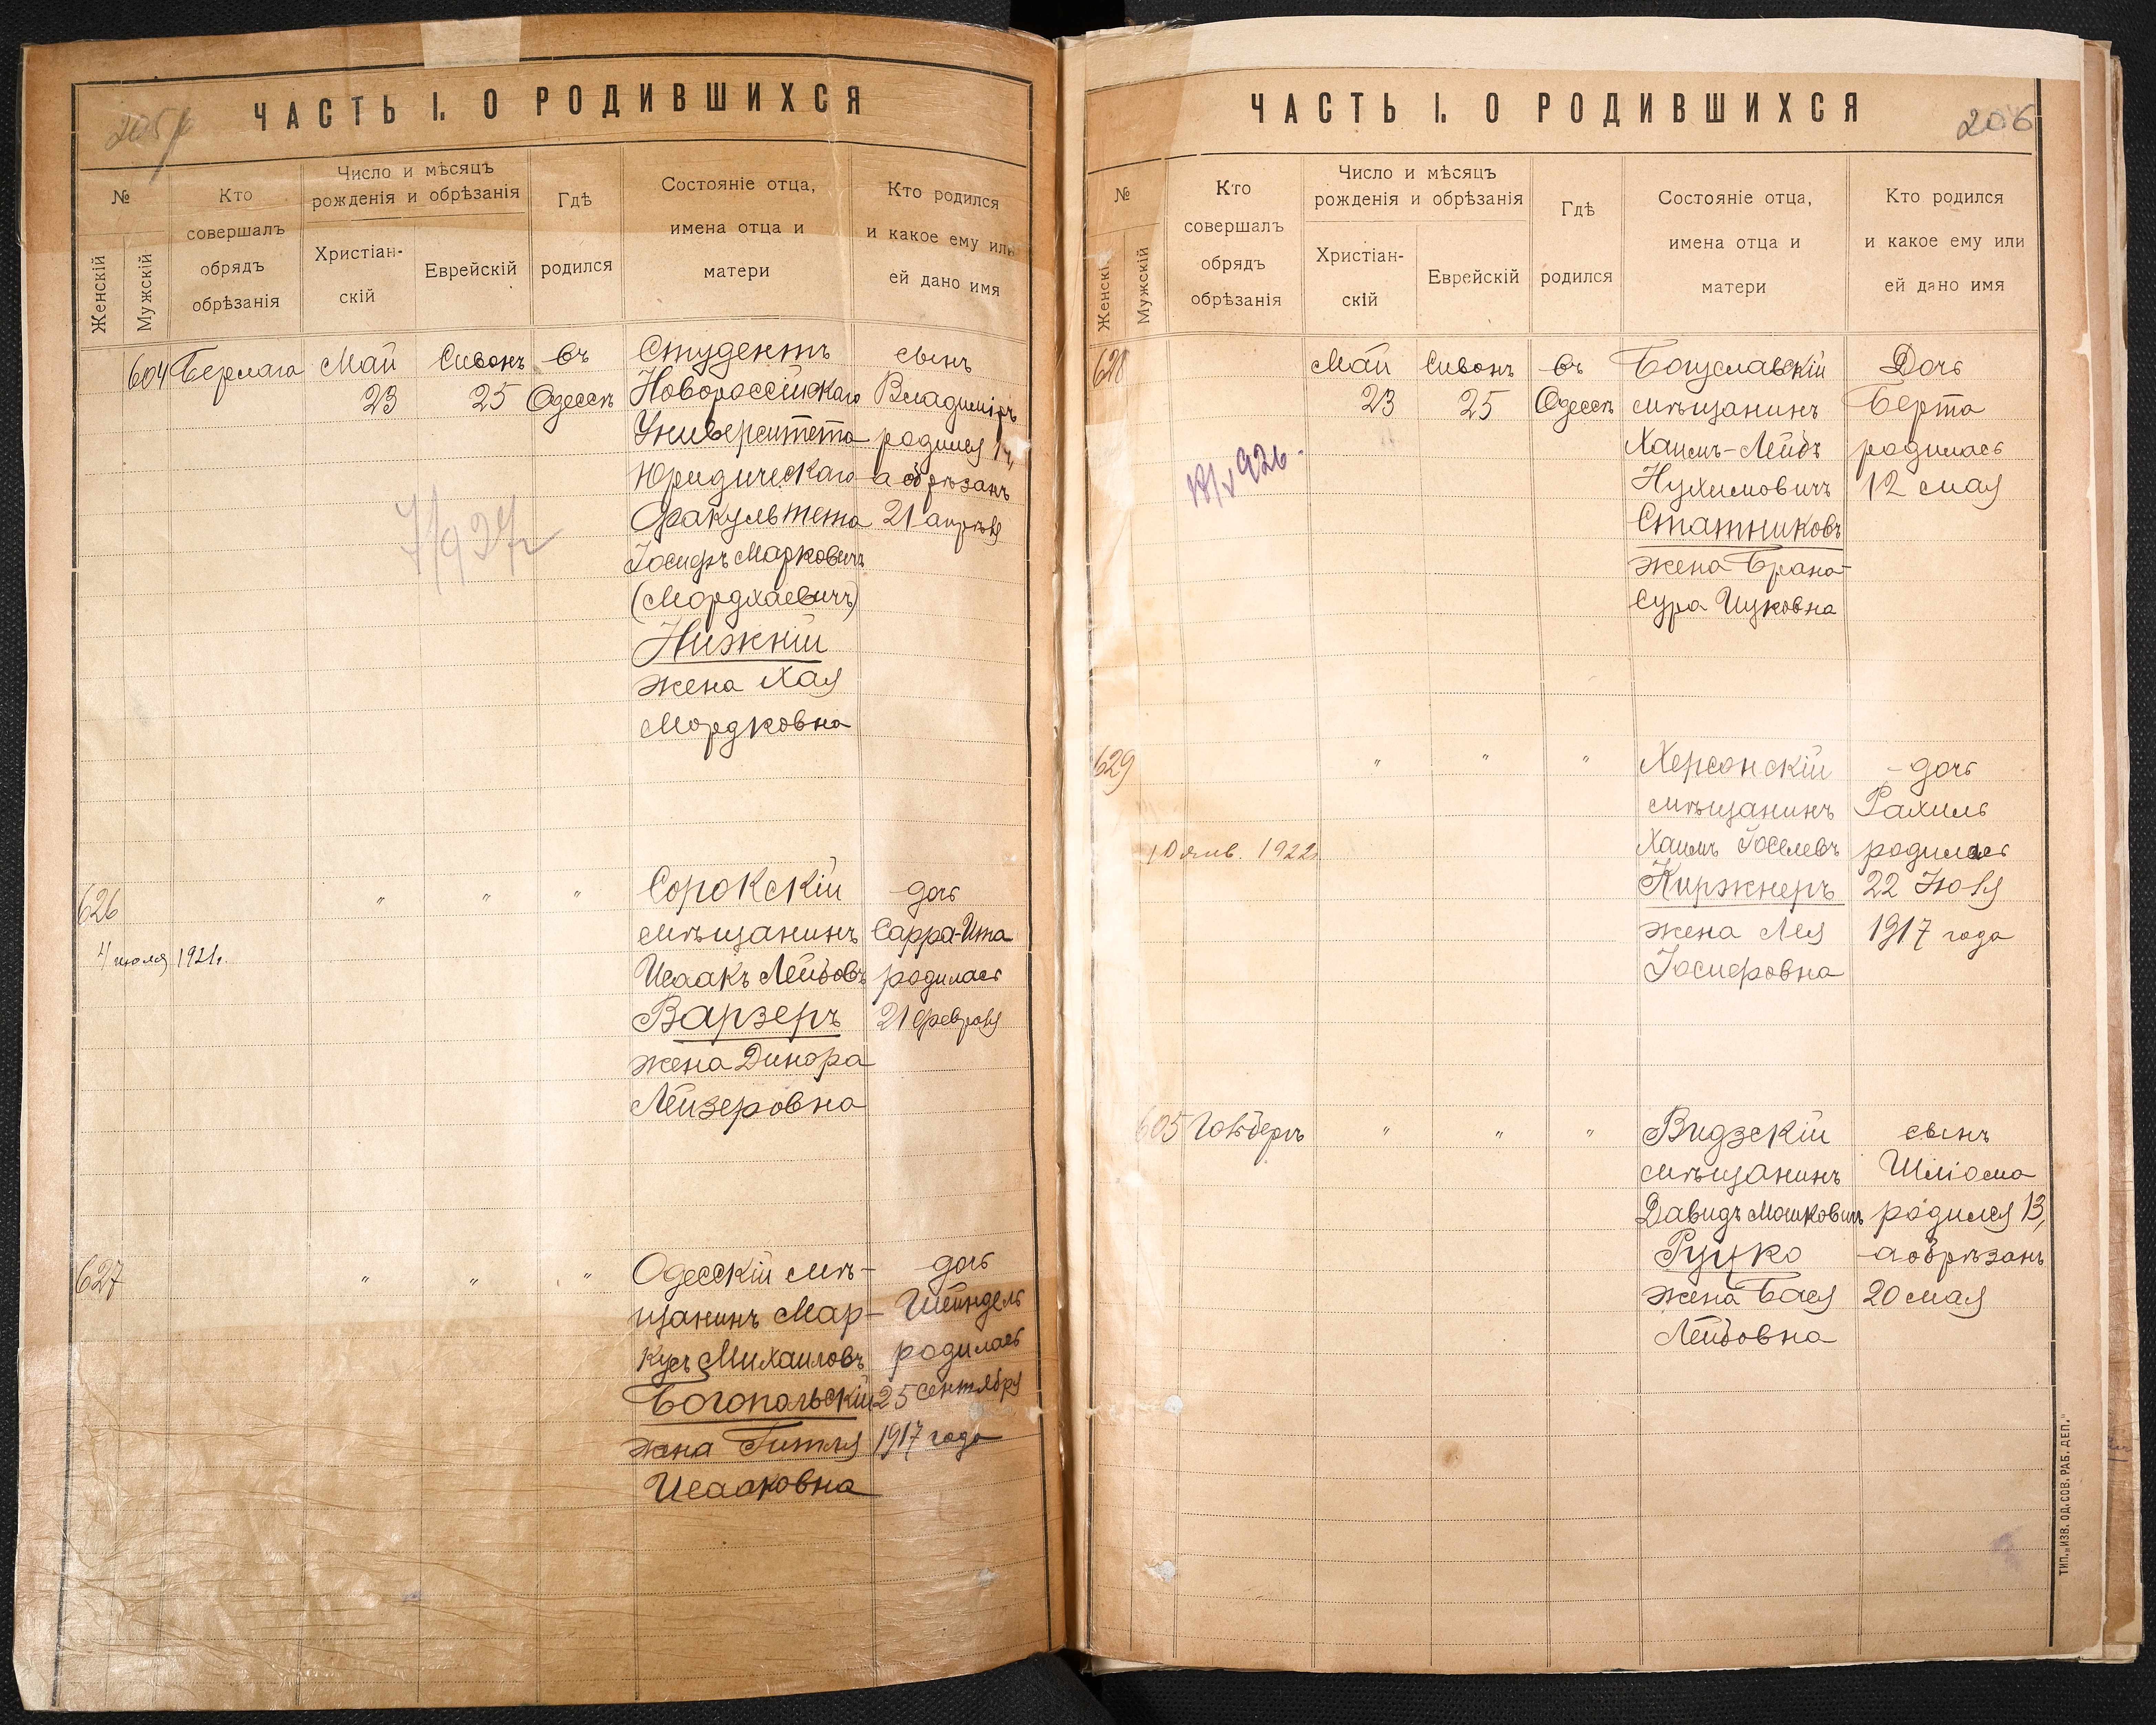 205
ЧАСТЬ I. О РОДИВШИХСЯ
№
Женскій
Мужскій
Кто
совершалъ
обрядъ
обрѣзанія
Число и мѣсяцъ
рожденія и обрѣзанія
Христіан-
скій
Еврейскій
Гдѣ
родился
Состояніе отца,
имена отца и
матери
Кто родился
и какое ему или
ей дано имя
604 Берлага Май Сивонъ въ Студентъ сынъ
23 25 Одессѣ Новороссійскаго Владиміръ
Университета родился 14,
Юридическаго а обрѣзанъ
Факультета 21 апрѣля
Іосифъ Марковичъ
(Мордхаевичъ)
Нижній
жена Хая
Мордковна
626 " " " Сорокскій дочь
мѣщанинъ Сарра-Ита
4 июля 1921г. Исаакъ Лейбовъ родилась
Варзеръ 21 февраля
жена Динора
Лейзеровна
627 " " " Одесскій мѣ- дочь
щанинъ Мар- Шейндель
кусъ Михаиловъ родилась
Богопольскій 25 сентября
жена Гитля 1917 года
Исааковна
ЧАСТЬ I. О РОДИВШИХСЯ
206
№
Женскій
Мужскій
Кто
совершалъ
обрядъ
обрѣзанія
Число и мѣсяцъ
рожденія и обрѣзанія
Христіан-
скій
Еврейскій
Гдѣ
родился
Состояніе отца,
имена отца и
матери
Кто родился
и какое ему или
ей дано имя
628 Май Сивонъ въ Богуславскій Дочь
23 25 Одессѣ мѣщанинъ Берта
Хаимъ-Лейбъ родилась
Нухимовичъ 12 мая
Статниковъ
жена Брана-
Сура Ицковна
629 " " " Херсонскій дочь
мѣщанинъ Рахиль
10 янв. 1922г. Хаимъ Іоселевъ родилась
Киржнеръ 22 Іюля
жена Лея 1917 года
Іосифовна
605 Гольбергъ " " " Видзскій сынъ
мѣщанинъ Шліома
Давидъ Мошковичъ родился 13,
Руцко а обрѣзанъ
жена Бася 20 мая
Лейбовна
ТИП. „ИЗВ. ОД. СОВ. РАБ. ДЕП.“